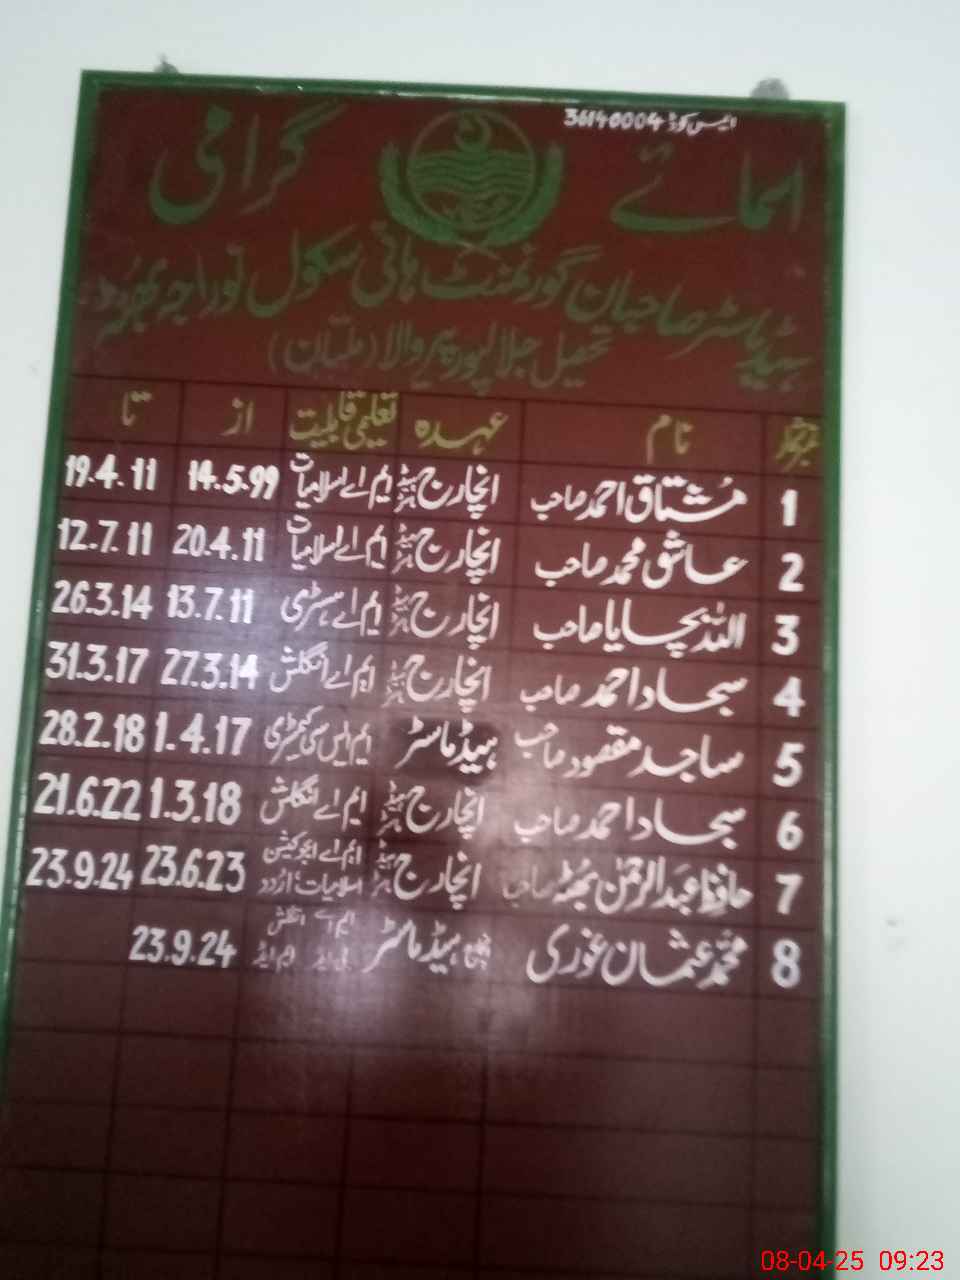 ایمس کوڈ 36140004
اسمائے گرامی
ہیڈ ماسٹر صاحبان گورنمنٹ ہائی سکول نور راجہ بھٹہ
تحصیل جلالپور پیروالا (ملتان)
نمبر شمار نام عہدہ تعلیمی قابلیت از تا
1 مُشتاق احمد صاحب انچارج ہیڈ ماسٹر ایم اے اسلامیات 14.5.99 19.4.11
2 عاشق محمد صاحب انچارج ہیڈ ماسٹر ایم اے اسلامیات 20.4.11 12.7.11
3 اللہ بچایا صاحب انچارج ہیڈ ماسٹر ایم اے ہسٹری 13.7.11 26.3.14
4 سجاد احمد صاحب انچارج ہیڈ ماسٹر ایم اے انگلش 27.3.14 31.3.17
5 ساجد مقصود صاحب ہیڈ ماسٹر ایم ایس سی کیمسٹری 1.4.17 28.2.18
6 سجاد احمد صاحب انچارج ہیڈ ماسٹر ایم اے انگلش 1.3.18 21.6.22
7 حافظ عبدالرحمٰن بھٹہ صاحب انچارج ہیڈ ماسٹر ایم اے ایجوکیشن اسلامیات، اُردو 23.6.23 23.9.24
8 محمد عثمان غوری ہیڈ ماسٹر ایم اے انگلش بی ایڈ ایم ایڈ 23.9.24
08-04-25 09:23